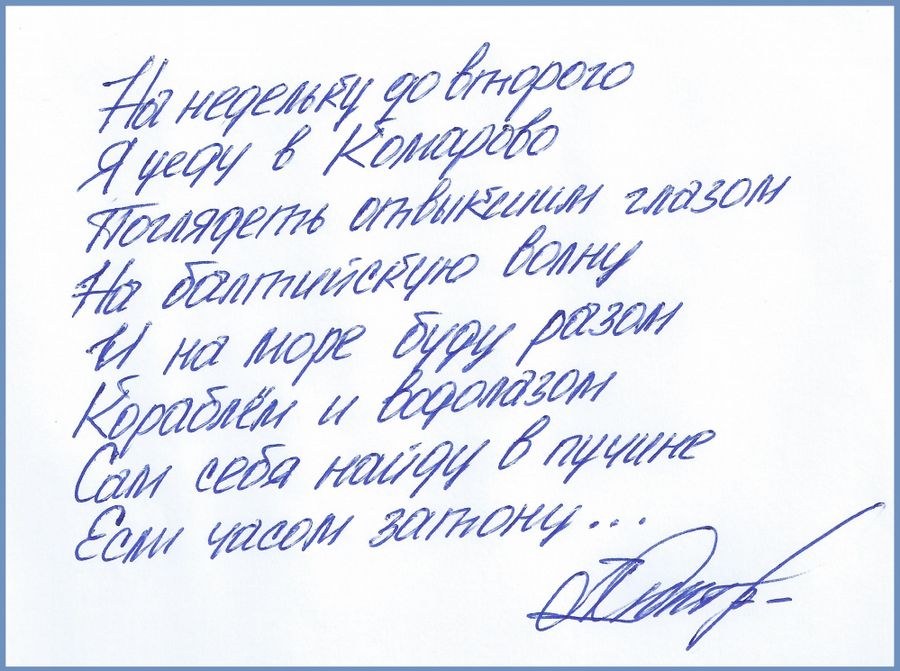 На недельку до второго
Я уеду в Комарово
Поглядеть отвыкшим глазом
На балтийскую волну
И на море буду разом
Кораблём и водолазом
Сам себя найду в пучине
Если часом затону...